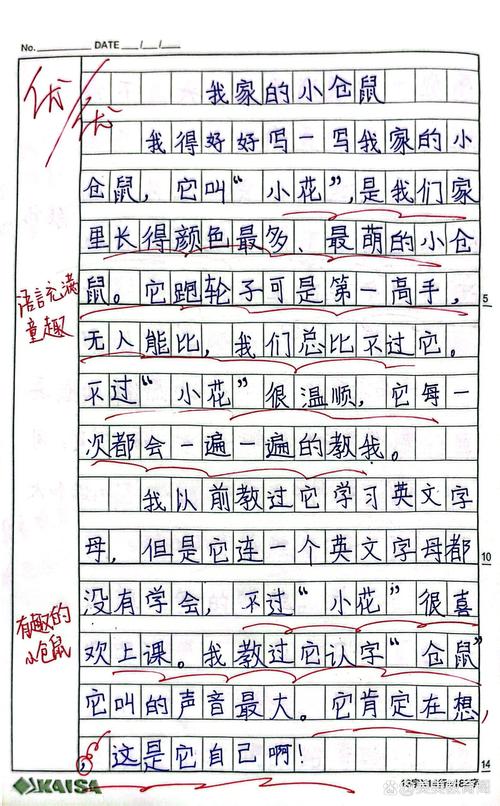 No. DATE / /
优
优
我家的小仓鼠
我得好好写一写我家的小
仓鼠,它叫“小花”,是我们家
里长得颜色最多、最萌的小仓
鼠。它跑轮子可是第一高手,
5
语言充满
童趣
无人能比,我们总比不过它。
不过“小花”很温顺,它每一
次都会一遍一遍的教我。
我以前教过它学习英文字
母,但是它连一个英文字母都
10
没有学会,不过“小花”很喜
有趣的
小仓鼠
欢上课。我教过它认字“仓鼠”
它叫的声音最大。它肯定在想,
这是它自己啊!
14
KAISA